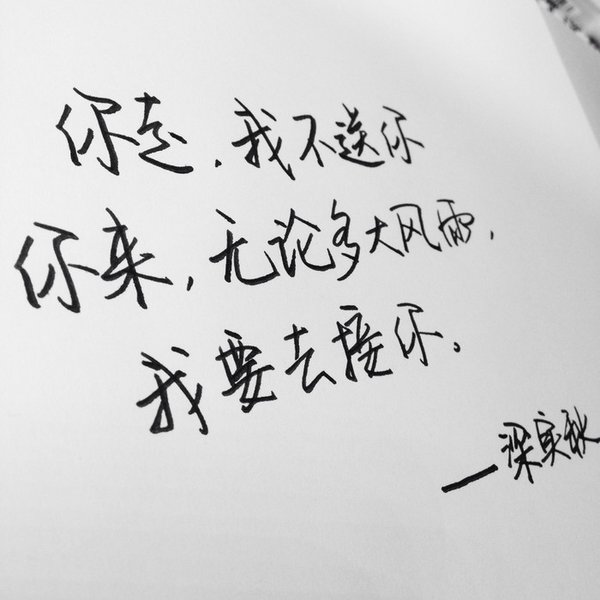 你走，我不送你
你来，无论多大风雨，
我要去接你。
—梁实秋